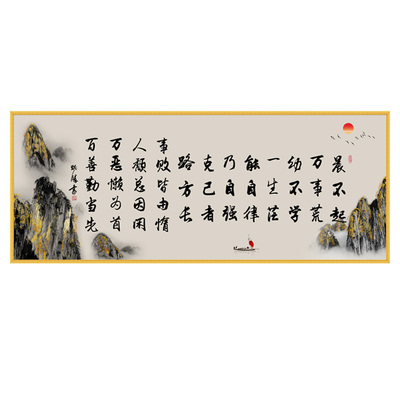 晨不起
万事荒
幼不学
一生茫
能自律
乃自强
克己者
路方长
事败皆由惰
人颓总因闲
万恶懒为首
百善勤当先